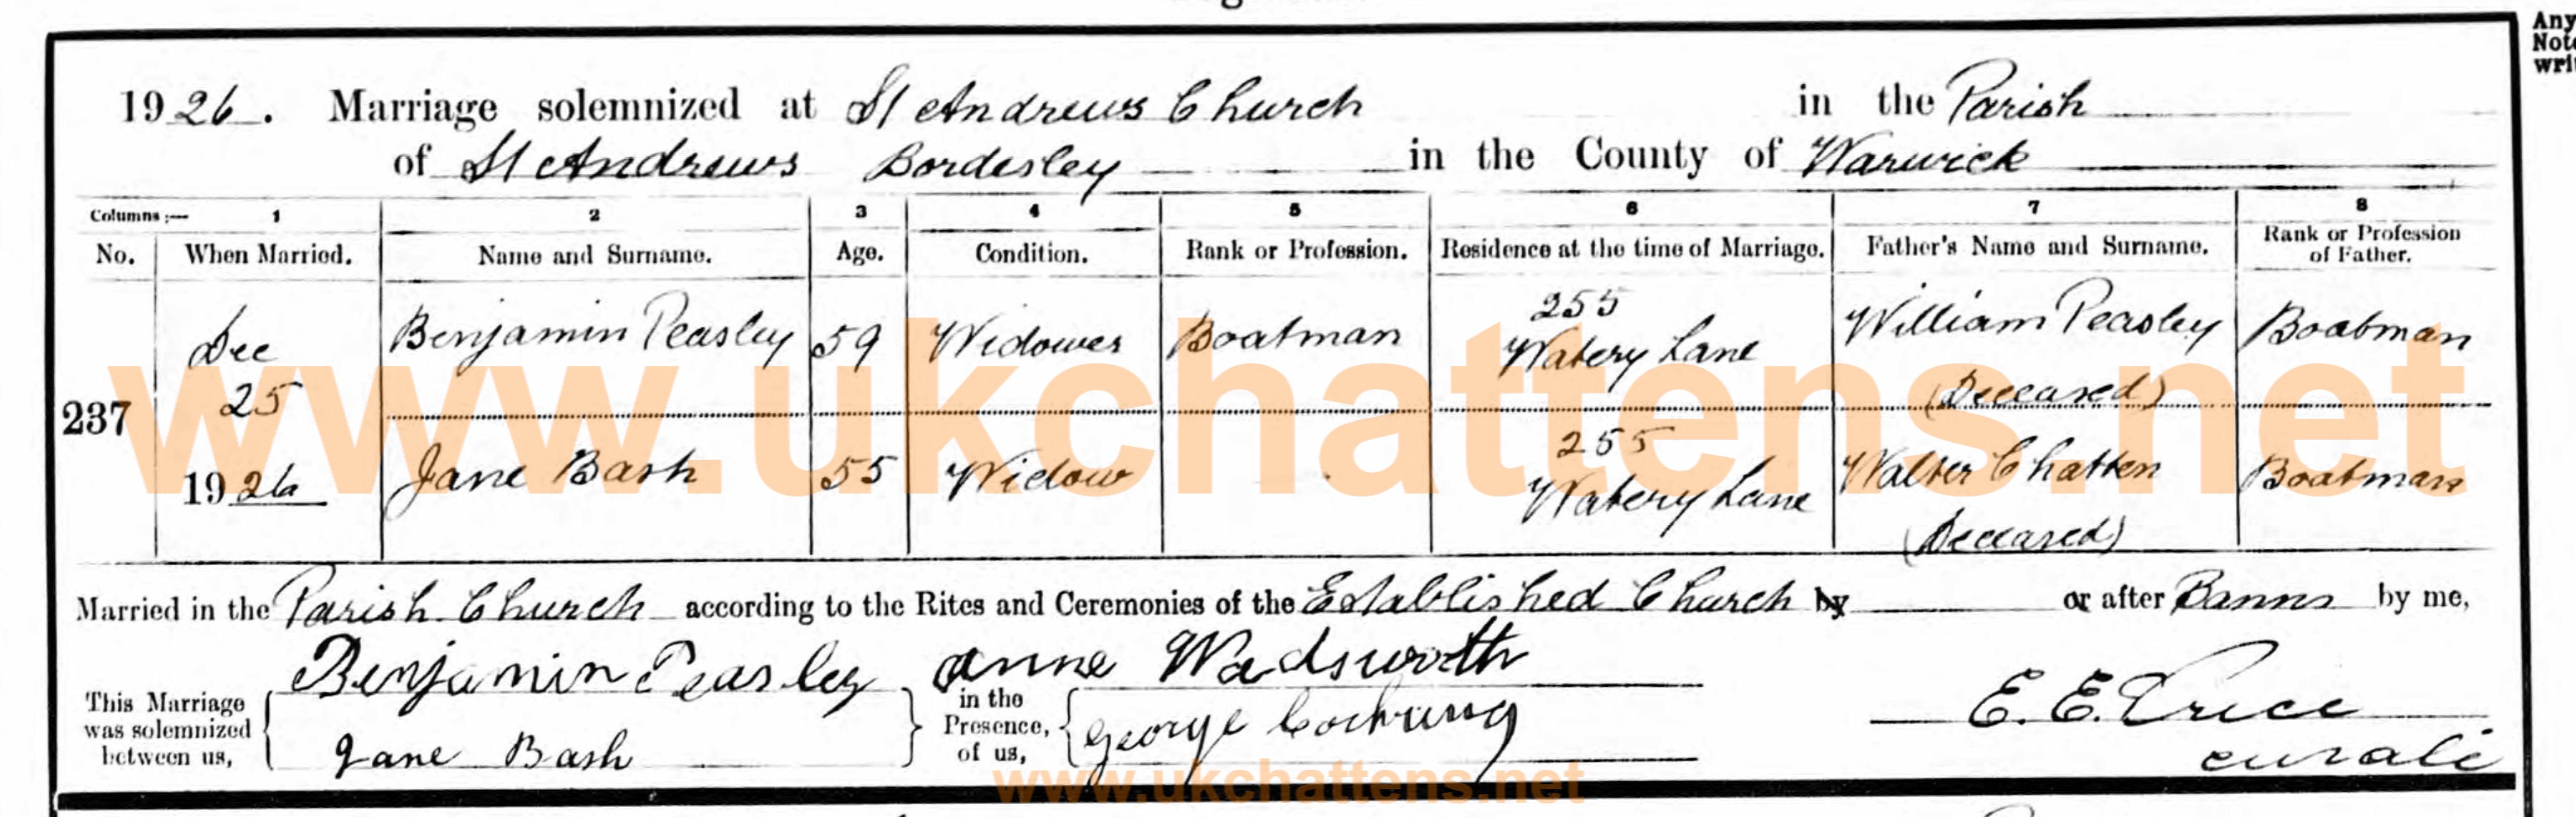 1926. Marriage solemnized at St Andrews Church in the Parish
of St Andrews Bordesley in the County of Warwick
Columns :— 1 2 3 4 5 6 7 8
No. When Married. Name and Surname. Age. Condition. Rank or Profession. Residence at the time of Marriage. Father's Name and Surname. Rank or Profession of Father.
237 Dec 25 1926 Benjamin Peasley 59 Widower Boatman 255 Watery Lane William Peasley (Deceased) Boatman
Jane Bash 55 Widow 255 Watery Lane Walter Chatten (Deceased) Boatman
Married in the Parish Church according to the Rites and Ceremonies of the Established Church by or after Banns by me,
This Marriage was solemnized between us, Benjamin Peasley in the Presence, of us, Anne Wadsworth E. E. Price
Jane Bash George curate
Any
Note
writ
www.ukchattens.net
www.ukchattens.net